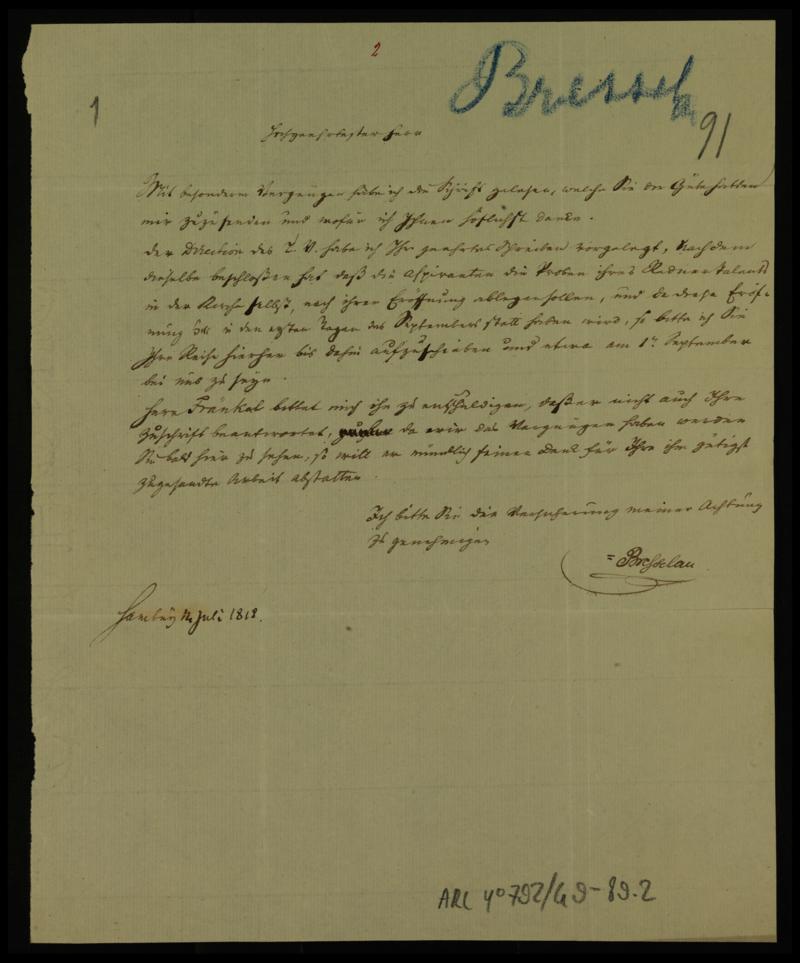 2
Bressel
91
1
Hochgeehrtester Herr
Mit besonderm Vergnügen habe ich die Schrift gelesen, welche Sie die Güte hatten
mir zuzusenden und wofür ich Ihnen höflichst danke.
Der Direction des T. V. habe ich Ihr geehrtes Schreiben vorgelegt, Nachdem
dieselbe beschlossen hat daß die Aspiranten die Proben ihres Redner Talents
in der selbst, nach ihrer Eröffnung ablegen sollen, und da diese Eröf-
nung in den ersten Tagen des Septembers statt haben wird, so bitte ich Sie
Ihre Reise hierher bis dahin aufzuschieben und etwa am 1t September
bei uns zu seyn.
Herr Fränkel bittet mich ihn zu entschuldigen, daß er nicht auch Ihre
Zuschrift beantwortet, da wir das Vergnügen haben werden
Sie bald hier zu sehen, so will er mündlich seinen Dank für Ihre ihm gütigst
zugesandte Arbeit abstatten.
Ich bitte Sie die Versicherung meiner Achtung
zu genehmigen
Bresselau
Hamburg 14 Juli 1818.
ARC 4° 792/G 9-89.2